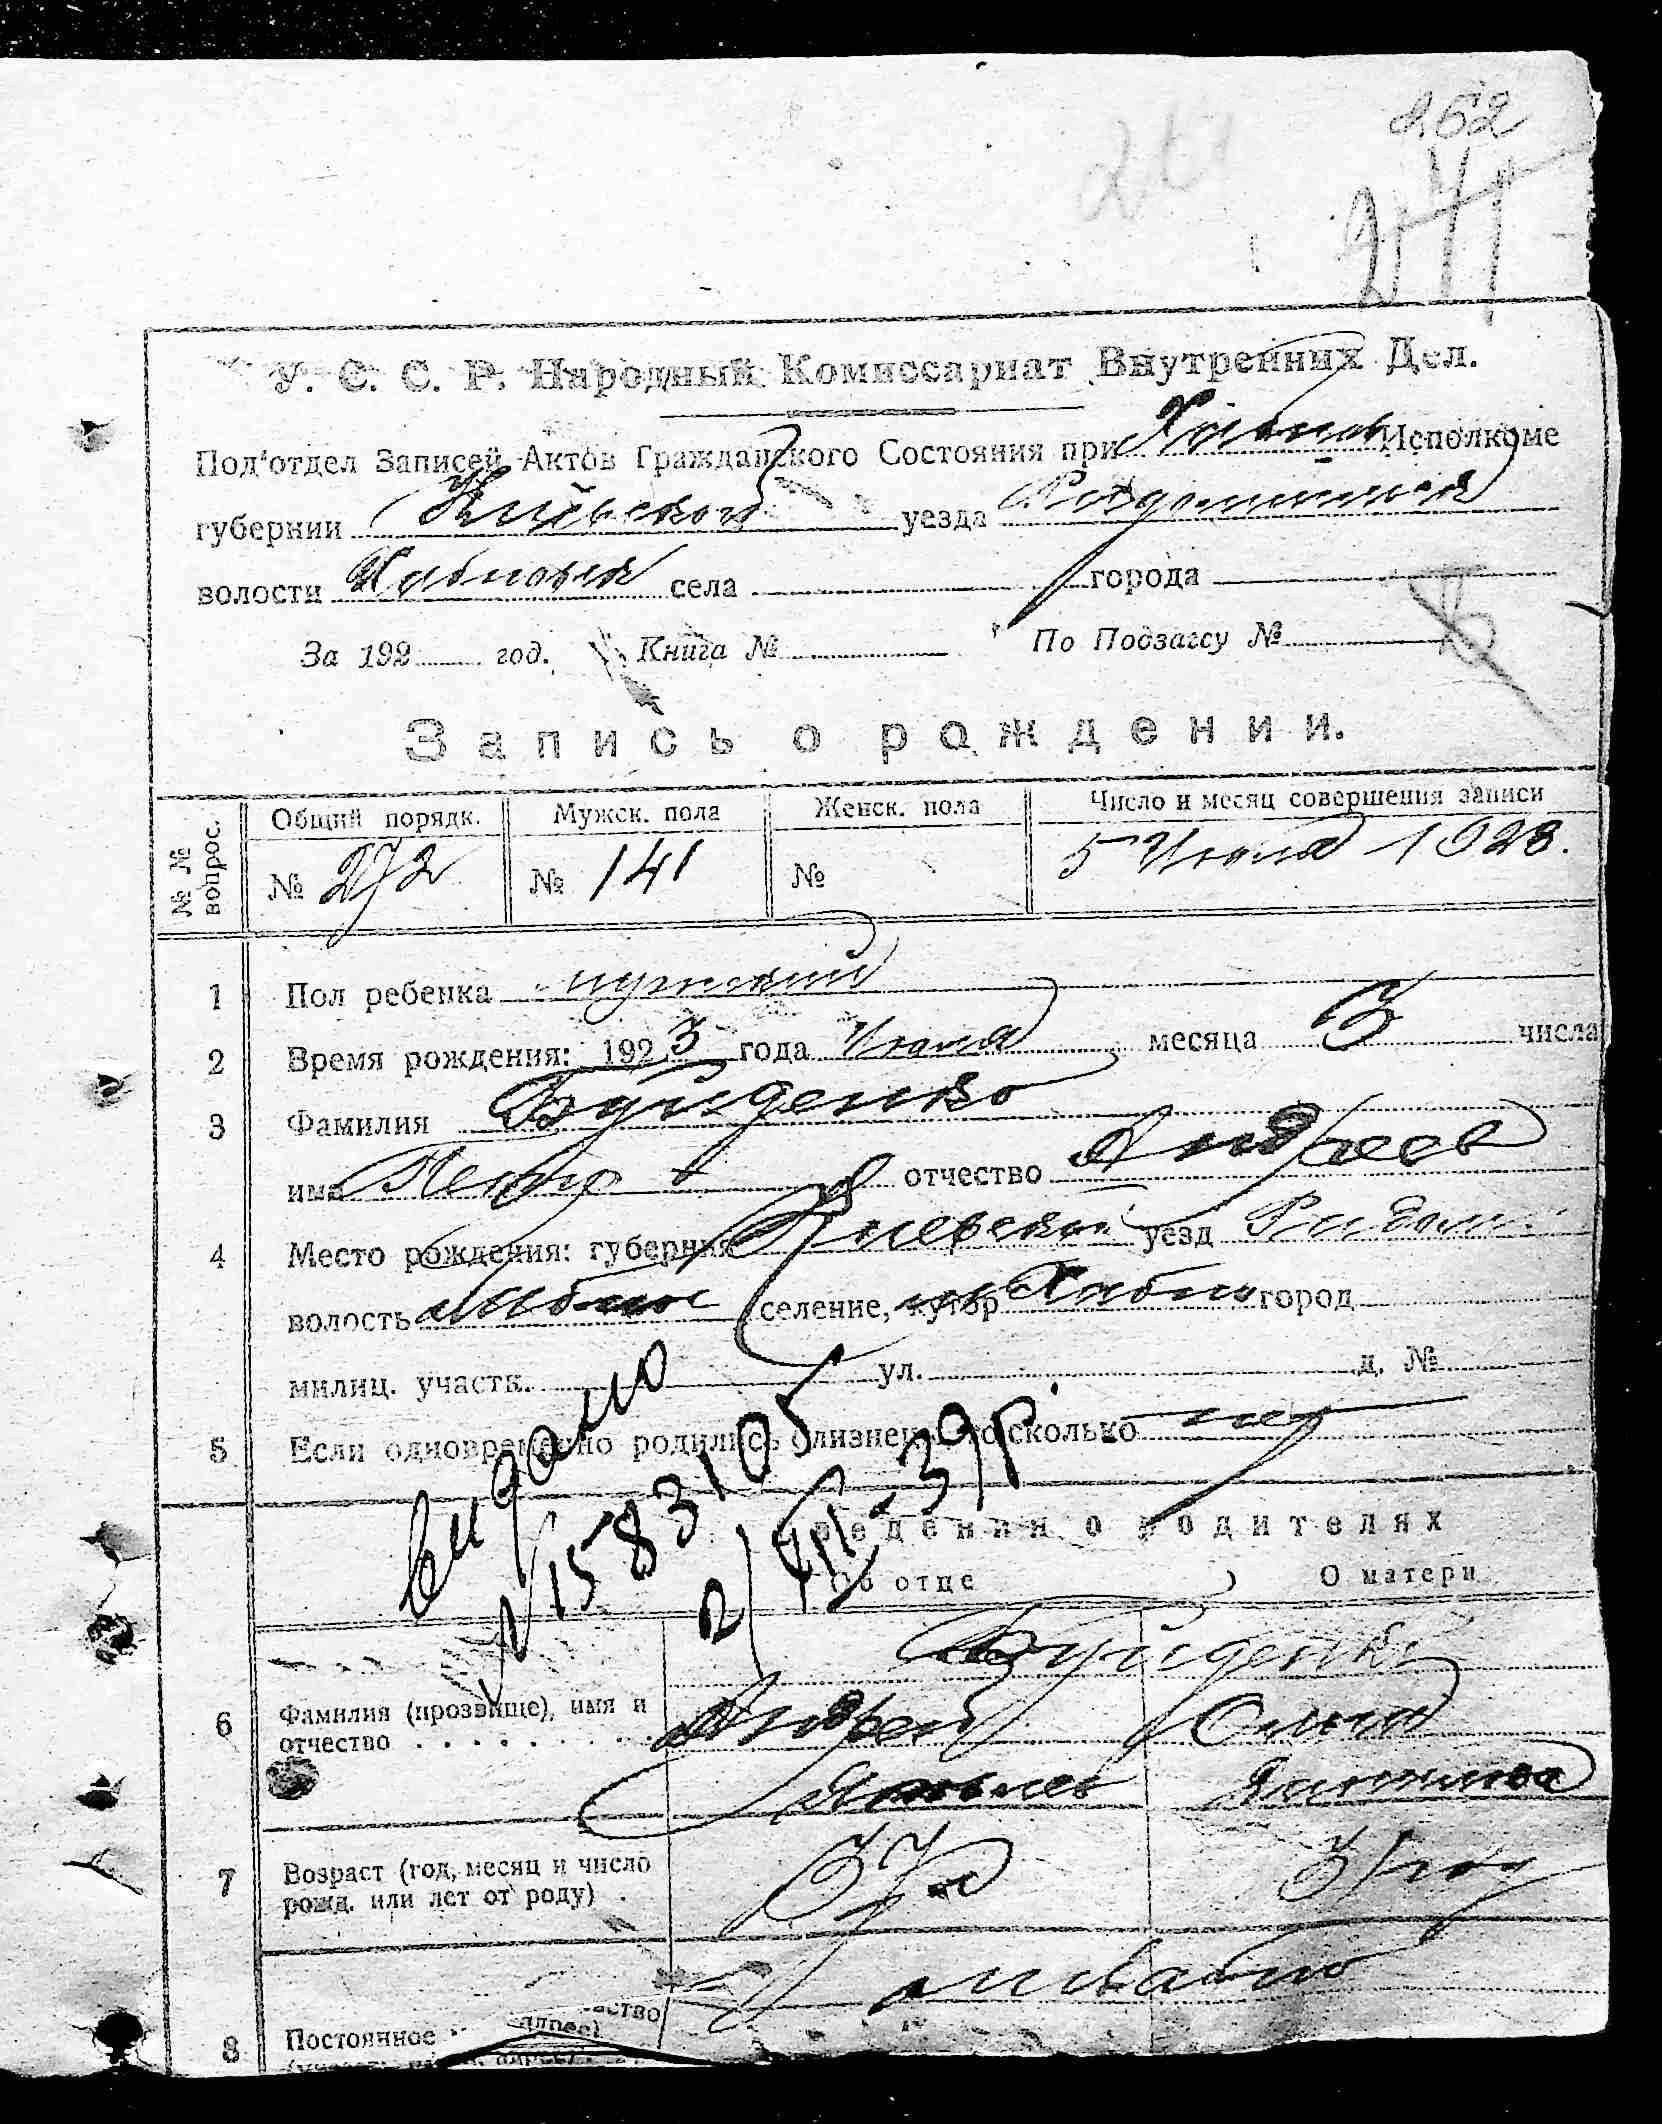 262
261
241
У. С. С. Р. Народный Комиссариат Внутренних Дел.
Под'отдел Записей Актов Гражданского Состояния при Хабнов Исполкоме
губернии Киевской уезда
волости села города
За 192 год. Книга № По Подзагсу №
Запись о рождении.
№ № вопрос. Общий порядк. Мужск. пола Женск. пола Число и месяц совершения записи
№ 272 № 141 № 5 Июля 1923.
1 Пол ребенка мужской
2 Время рождения: 1923 года Июля месяца 3 числа
3 Фамилия Буйденко
имя Петр отчество Андреев
4 Место рождения: губерния Киевская уезд
волость селение, хутор Хабно город
милиц. участк. ул. д. №
5 Если одновременно родились близнецы, то сколько нет
видано
№ 1583105
2/VIII-39р.
Сведения о родителях
Об отце О матери
Буйденко
6 Фамилия (прозвище), имя и Андрей Ольга
отчество Яковлев
7 Возраст (год, месяц и число 37 л 31 год
рожд. или лет от роду)
м Хабно
8 Постоянное